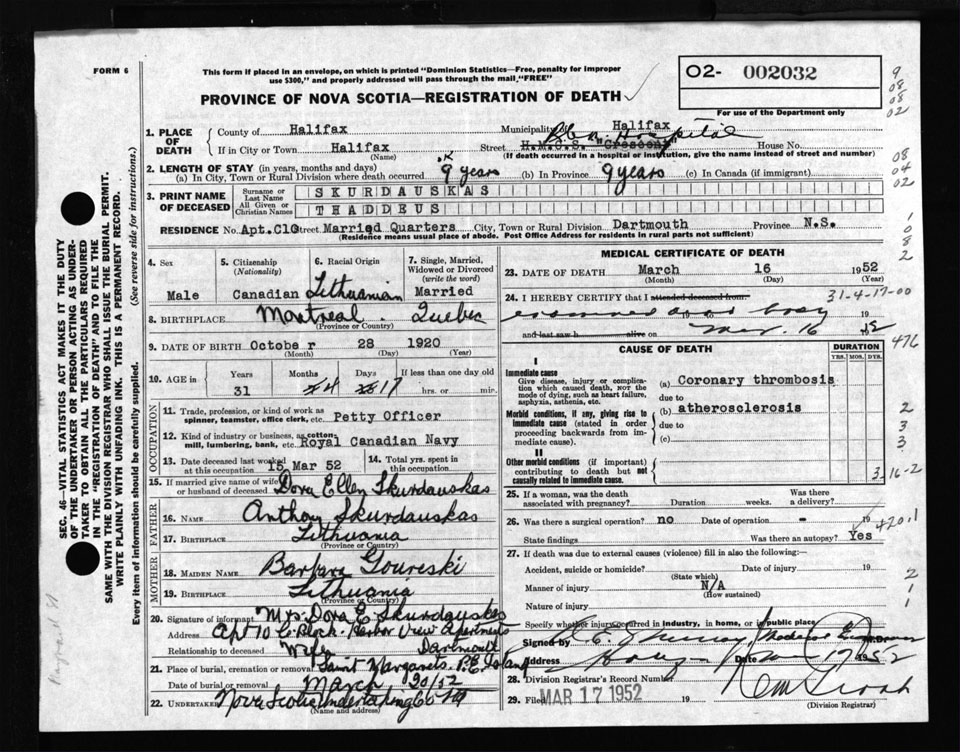 FORM 6
This form if placed in an envelope, on which is printed "Dominion Statistics—Free, penalty for improper
use $300," and properly addressed will pass through the mail, "FREE"
O2- 002032
PROVINCE OF NOVA SCOTIA—REGISTRATION OF DEATH
For use of the Department only
1. PLACE OF DEATH
County of Halifax Municipality of Halifax
If in City or Town Halifax (Name) Street H.M.C.S. "Crescent" Hospital House No.
(If death occurred in a hospital or institution, give the name instead of street and number)
2. LENGTH OF STAY (in years, months and days)
(a) In City, Town or Rural Division where death occurred 9 years (b) In Province 9 years (c) In Canada (if immigrant)
3. PRINT NAME OF DECEASED
Surname or Last Name SKURDAUSKAS
All Given or Christian Names THADDEUS
RESIDENCE No. Apt.C10 Street Married Quarters City, Town or Rural Division Dartmouth Province N.S.
(Residence means usual place of abode. Post Office Address for residents in rural parts not sufficient)
4. Sex
Male
5. Citizenship (Nationality)
Canadian
6. Racial Origin
Lithuanian
7. Single, Married, Widowed or Divorced (write the word)
Married
8. BIRTHPLACE Montreal. Quebec
(Province or Country)
9. DATE OF BIRTH October 28 1920
(Month) (Day) (Year)
10. AGE in Years Months Days If less than one day old
31 4 17 hrs. or min.
OCCUPATION
11. Trade, profession, or kind of work as spinner, teamster, office clerk, etc. Petty Officer
12. Kind of industry or business, as cotton mill, lumbering, bank, etc. Royal Canadian Navy
13. Date deceased last worked at this occupation 15 Mar 52
14. Total yrs. spent in this occupation
15. If married give name of wife or husband of deceased Dora Ellen Skurdauskas
FATHER
16. NAME Anthony Skurdauskas
17. BIRTHPLACE Lithuania
(Province or Country)
MOTHER
18. MAIDEN NAME Barbara Goureski
19. BIRTHPLACE Lithuania
(Province or Country)
20. Signature of informant Mrs. Dora E. Skurdauskas
Address Apt 10 C. Block. Harbor View Apartments
Relationship to deceased Wife Dartmouth
21. Place of burial, cremation or removal Saint Margarets. P.E. Island
Date of burial or removal March 20/52
22. UNDERTAKER Nova Scotia Undertaking Co Ltd
(Name and address)
MEDICAL CERTIFICATE OF DEATH
23. DATE OF DEATH March 16 1952
(Month) (Day)
24. I HEREBY CERTIFY that I attended deceased from: 31-4-17-00
examined body 19
and last saw h alive on Mar. 16 1952
CAUSE OF DEATH
DURATION
YRS. MOS. DYS.
I
Immediate cause
Give disease, injury or complication which caused death, NOT the mode of dying, such as heart failure, asphyxia, asthenia, etc.
(a) Coronary thrombosis
due to
Morbid conditions, if any, giving rise to immediate cause (stated in order proceeding backwards from immediate cause).
(b) atherosclerosis
due to
(c)
II
Other morbid conditions (if important) contributing to death but not causally related to immediate cause.
25. If a woman, was the death associated with pregnancy? Duration weeks. Was there a delivery?
26. Was there a surgical operation? no Date of operation - 19
420.1
State findings Was there an autopsy? Yes
27. If death was due to external causes (violence) fill in also the following:—
Accident, suicide or homicide? Date of injury 19
(State which)
Manner of injury N/A
(How sustained)
Nature of injury
Specify whether injury occurred in industry, in home, or in public place
Signed by
Address Date 17 1952
28. Division Registrar's Record Number
29. Filed MAR 17 1952 19
(Division Registrar)
9
08
08
02
08
04
02
1
0
8
2
476
2
3
3
3.16-2
2
1
1
SEC. 46—VITAL STATISTICS ACT MAKES IT THE DUTY
OF THE UNDERTAKER OR PERSON ACTING AS UNDERTAKER TO OBTAIN ALL THE PARTICULARS REQUIRED
IN THE "REGISTRATION OF DEATH" AND TO FILE THE
SAME WITH THE DIVISION REGISTRAR WHO SHALL ISSUE THE BURIAL PERMIT.
WRITE PLAINLY WITH UNFADING INK. THIS IS A PERMANENT RECORD.
Every item of information should be carefully supplied. (See reverse side for instructions.)